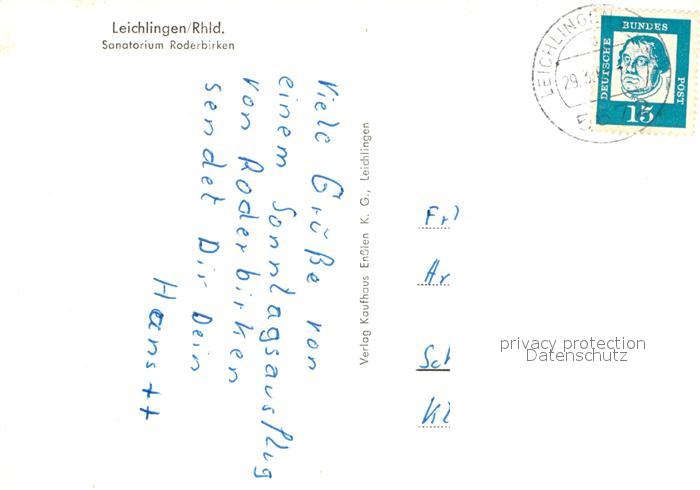 Leichlingen/Rhld.
Sanatorium Roderbirken
Viele Grüße von
einem Sonntagsausflug
von Roderbirken
sendet Dir Dein
Hans ++
Verlag Kaufhaus Enßlen K. G., Leichlingen
LEICHLINGEN
29.
DEUTSCHE
BUNDES
POST
15
Frl
Ar
Sch
Kl
privacy protection
Datenschutz